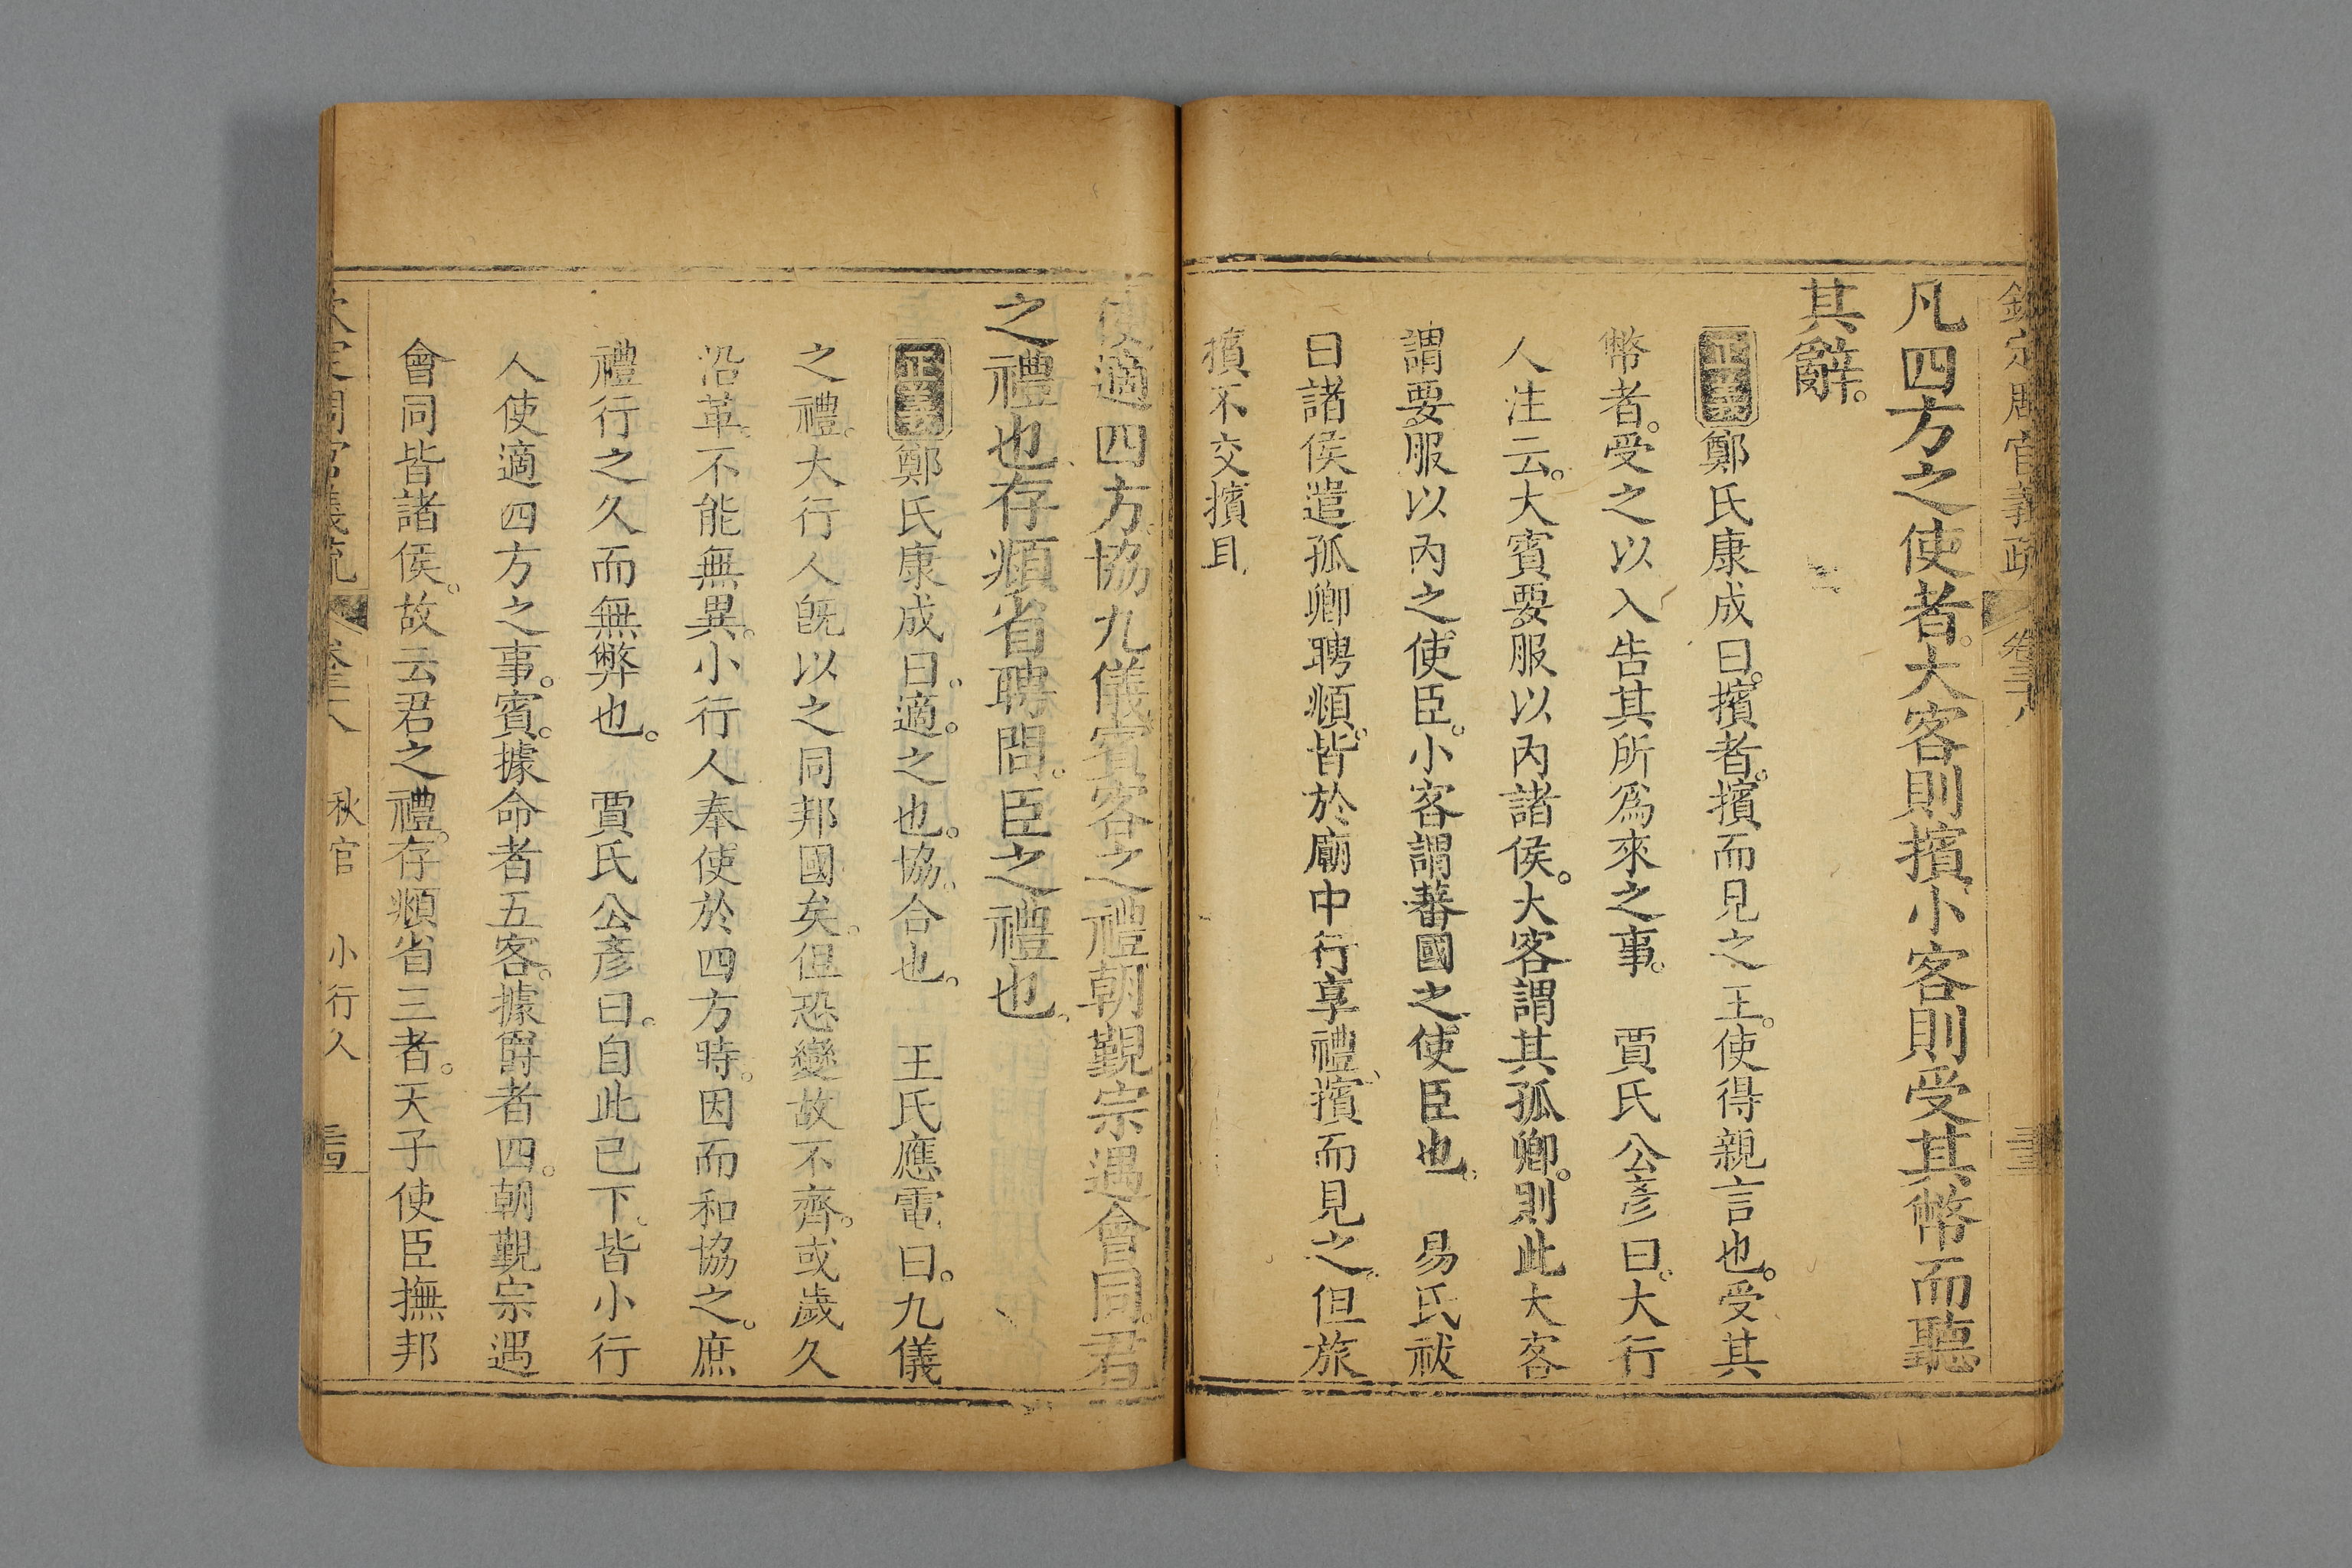 欽定周官義疏 卷三十八
凡四方之使者。大客則擯。小客則受其幣而聽
其辭。
正義鄭氏康成曰。擯者。擯而見之王。使得親言也。受其
幣者。受之以入告其所爲來之事。 賈氏公彥曰。大行
人注云。大賓要服以內諸侯。大客謂其孤卿。則此大客
謂要服以內之使臣。小客謂蕃國之使臣也。 易氏祓
曰諸侯遣孤卿聘頫。皆於廟中行享禮。擯而見之。但旅
擯不交擯耳。
使適四方。協九儀賓客之禮。朝覲宗遇會同。君
之禮也。存頫省聘問。臣之禮也。
正義鄭氏康成曰。適。之也。協。合也。 王氏應電曰。九儀
之禮。大行人旣以之同邦國矣。但恐變故不齊。或歲久
沿革。不能無異。小行人奉使於四方時。因而和協之。庶
禮行之久而無弊也。 賈氏公彥曰。自此已下。皆小行
人使適四方之事。賓。據命者五。客。據爵者四。朝覲宗遇
會同皆諸侯。故云君之禮。存頫省三者。天子使臣撫邦
欽定周官義疏 卷三十八 秋官 小行人